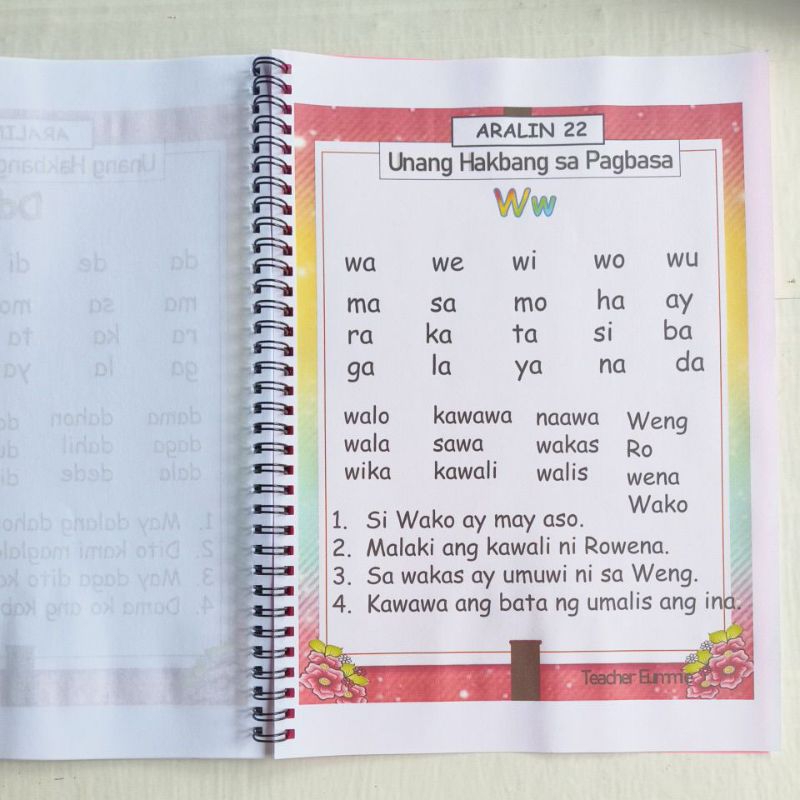 ARALIN 22
Unang Hakbang sa Pagbasa
Ww
wa we wi wo wu
ma sa mo ha ay
ra ka ta si ba
ga la ya na da
walo kawawa naawa Weng
wala sawa wakas Ro
wika kawali walis wena
Wako
1. Si Wako ay may aso.
2. Malaki ang kawali ni Rowena.
3. Sa wakas ay umuwi ni sa Weng.
4. Kawawa ang bata ng umalis ang ina.
Teacher Eummie